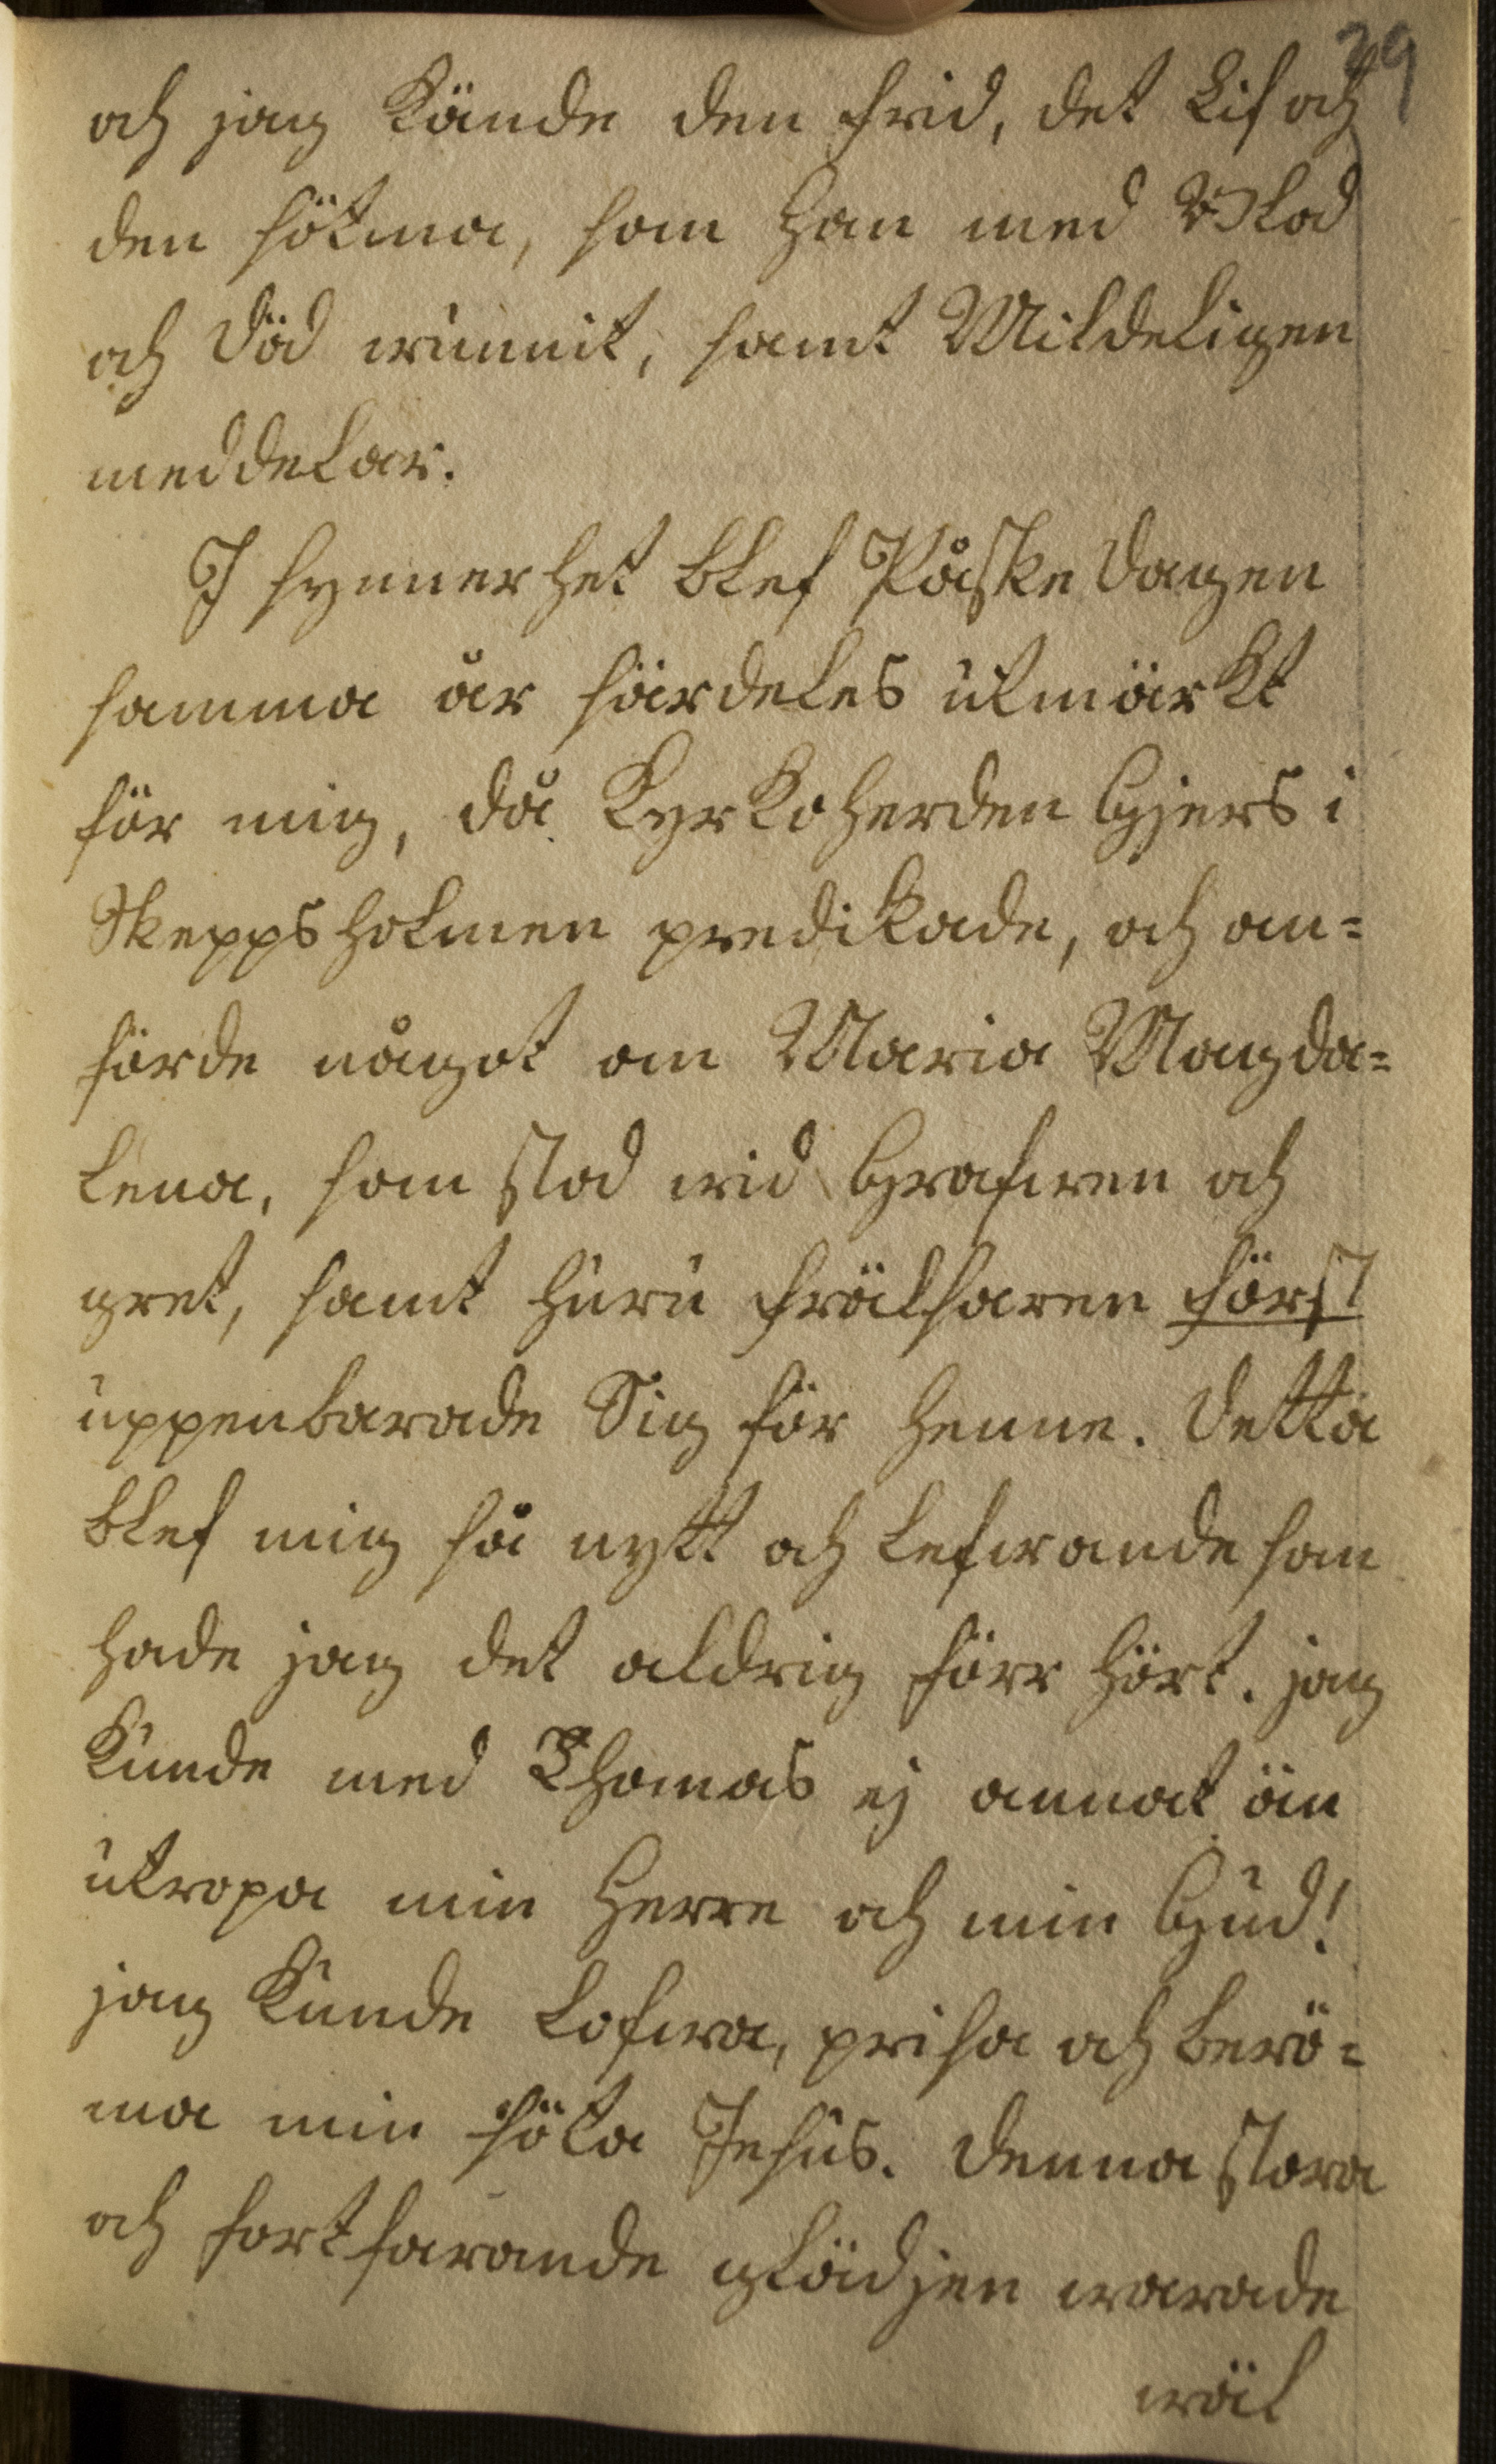 29
och jag kände den frid, det Lif och
den sötma, som Han med Blod
och Död wunnit, samt Mildeligen
meddelar.
I synnerhet blef Påske Dagen
samma år särdeles utmärkt
för mig, då Kyrkoherden Gjers i
Skeppsholmen predikade, och an=
förde något om Maria Magda=
lena, som stod wid Grafwen och
gret, samt huru Frälsaren först
uppenbarade Sig för henne. Detta
blef mig så nytt och lefwande som
hade jag det aldrig förr hört. jag
kunde med Thomas ej annat än
utropa min Herre och min Gud!
jag kunde lofwa, prisa och berö=
ma min söta Jesus. Denna stora
och fortfarande glädjen warade
wäl